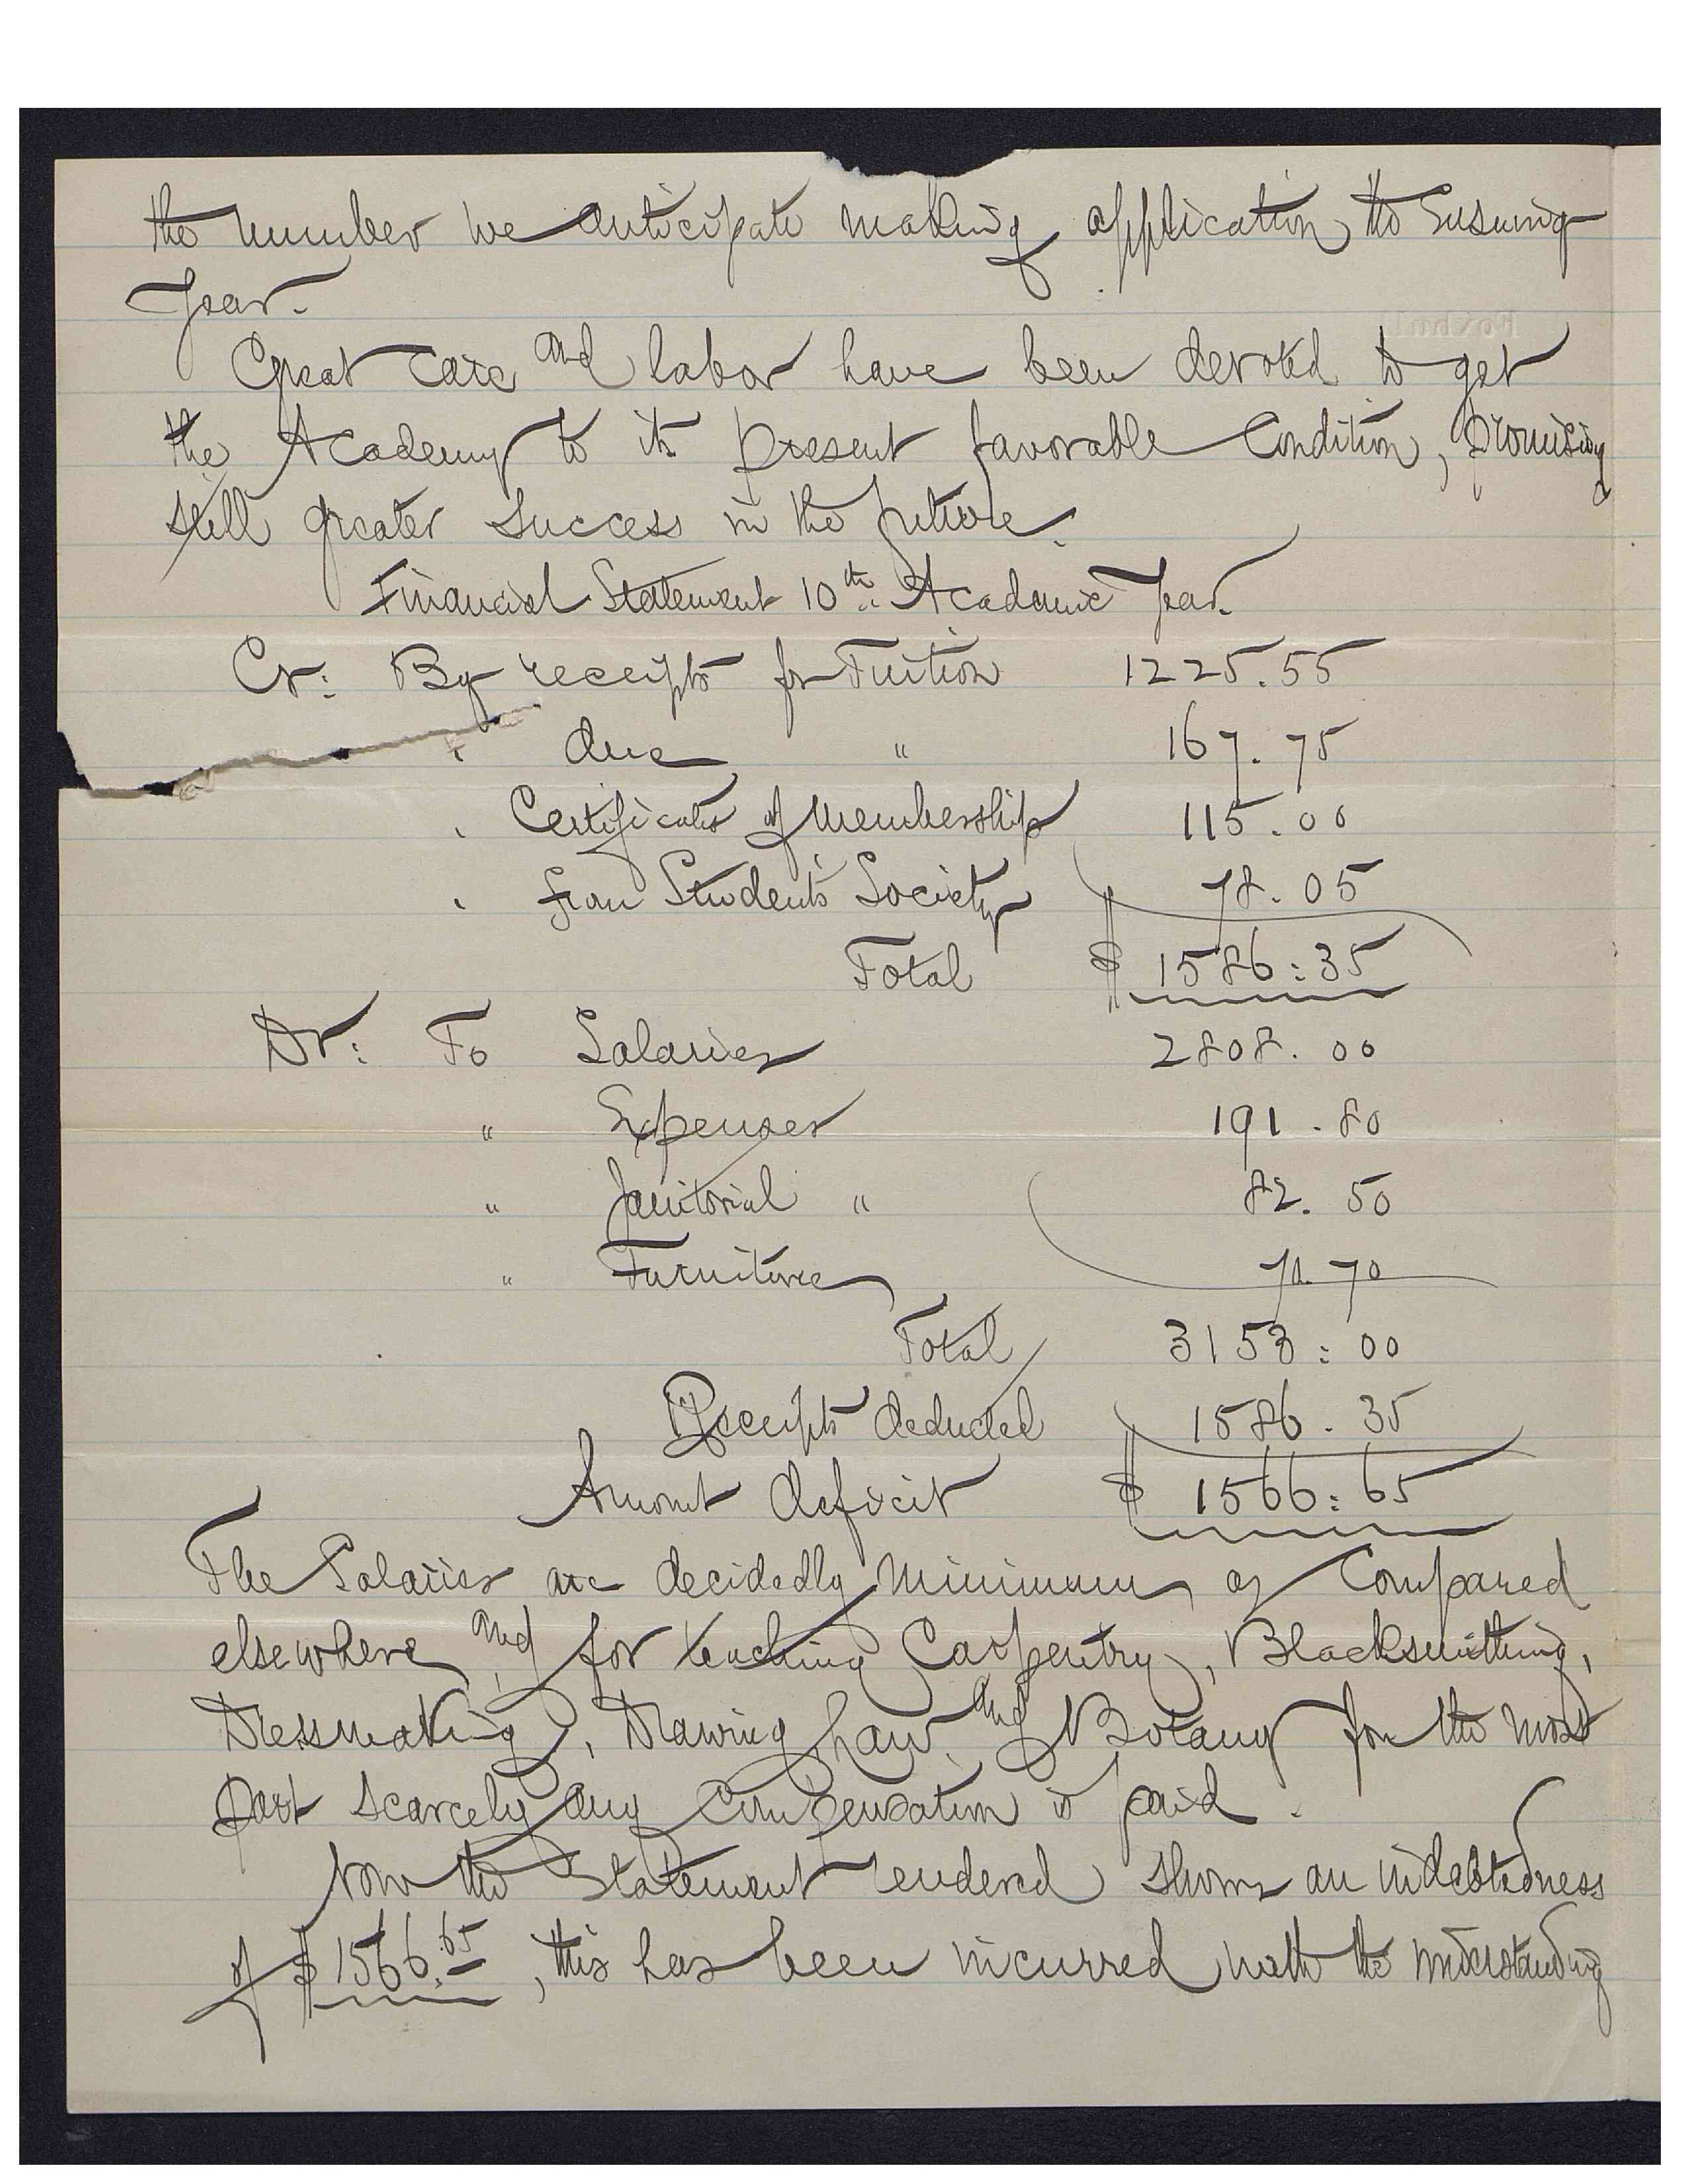 the number we anticipate making application the Ensuing
Year.
Great care and labor have been devoted to get
the Academy to its present favorable Condition, promising
still greater success in the future.
Financial Statement 10th Academic Year.
Cr: By receipts for Tuition 1225.55
" due " 167.75
" Certificates of Membership 115.00
" from Students Society 78.05
Total $ 1586:35
Dr: To Salaries 2808.00
" Expenses 191.80
" Janitorial " 82.50
" Furniture 70.70
Total 3153:00
Receipts deducted 1586.35
Amount deficit $ 1566:65
The Salaries are decidedly minimum as Compared
elsewhere and for teaching Carpentry, Blacksmithing,
Dressmaking, Drawing, Law, and Botany for the most
part scarcely any compensation is paid.
Now the Statement rendered shows an indebtedness
of $1566.65, this has been incurred with the understanding